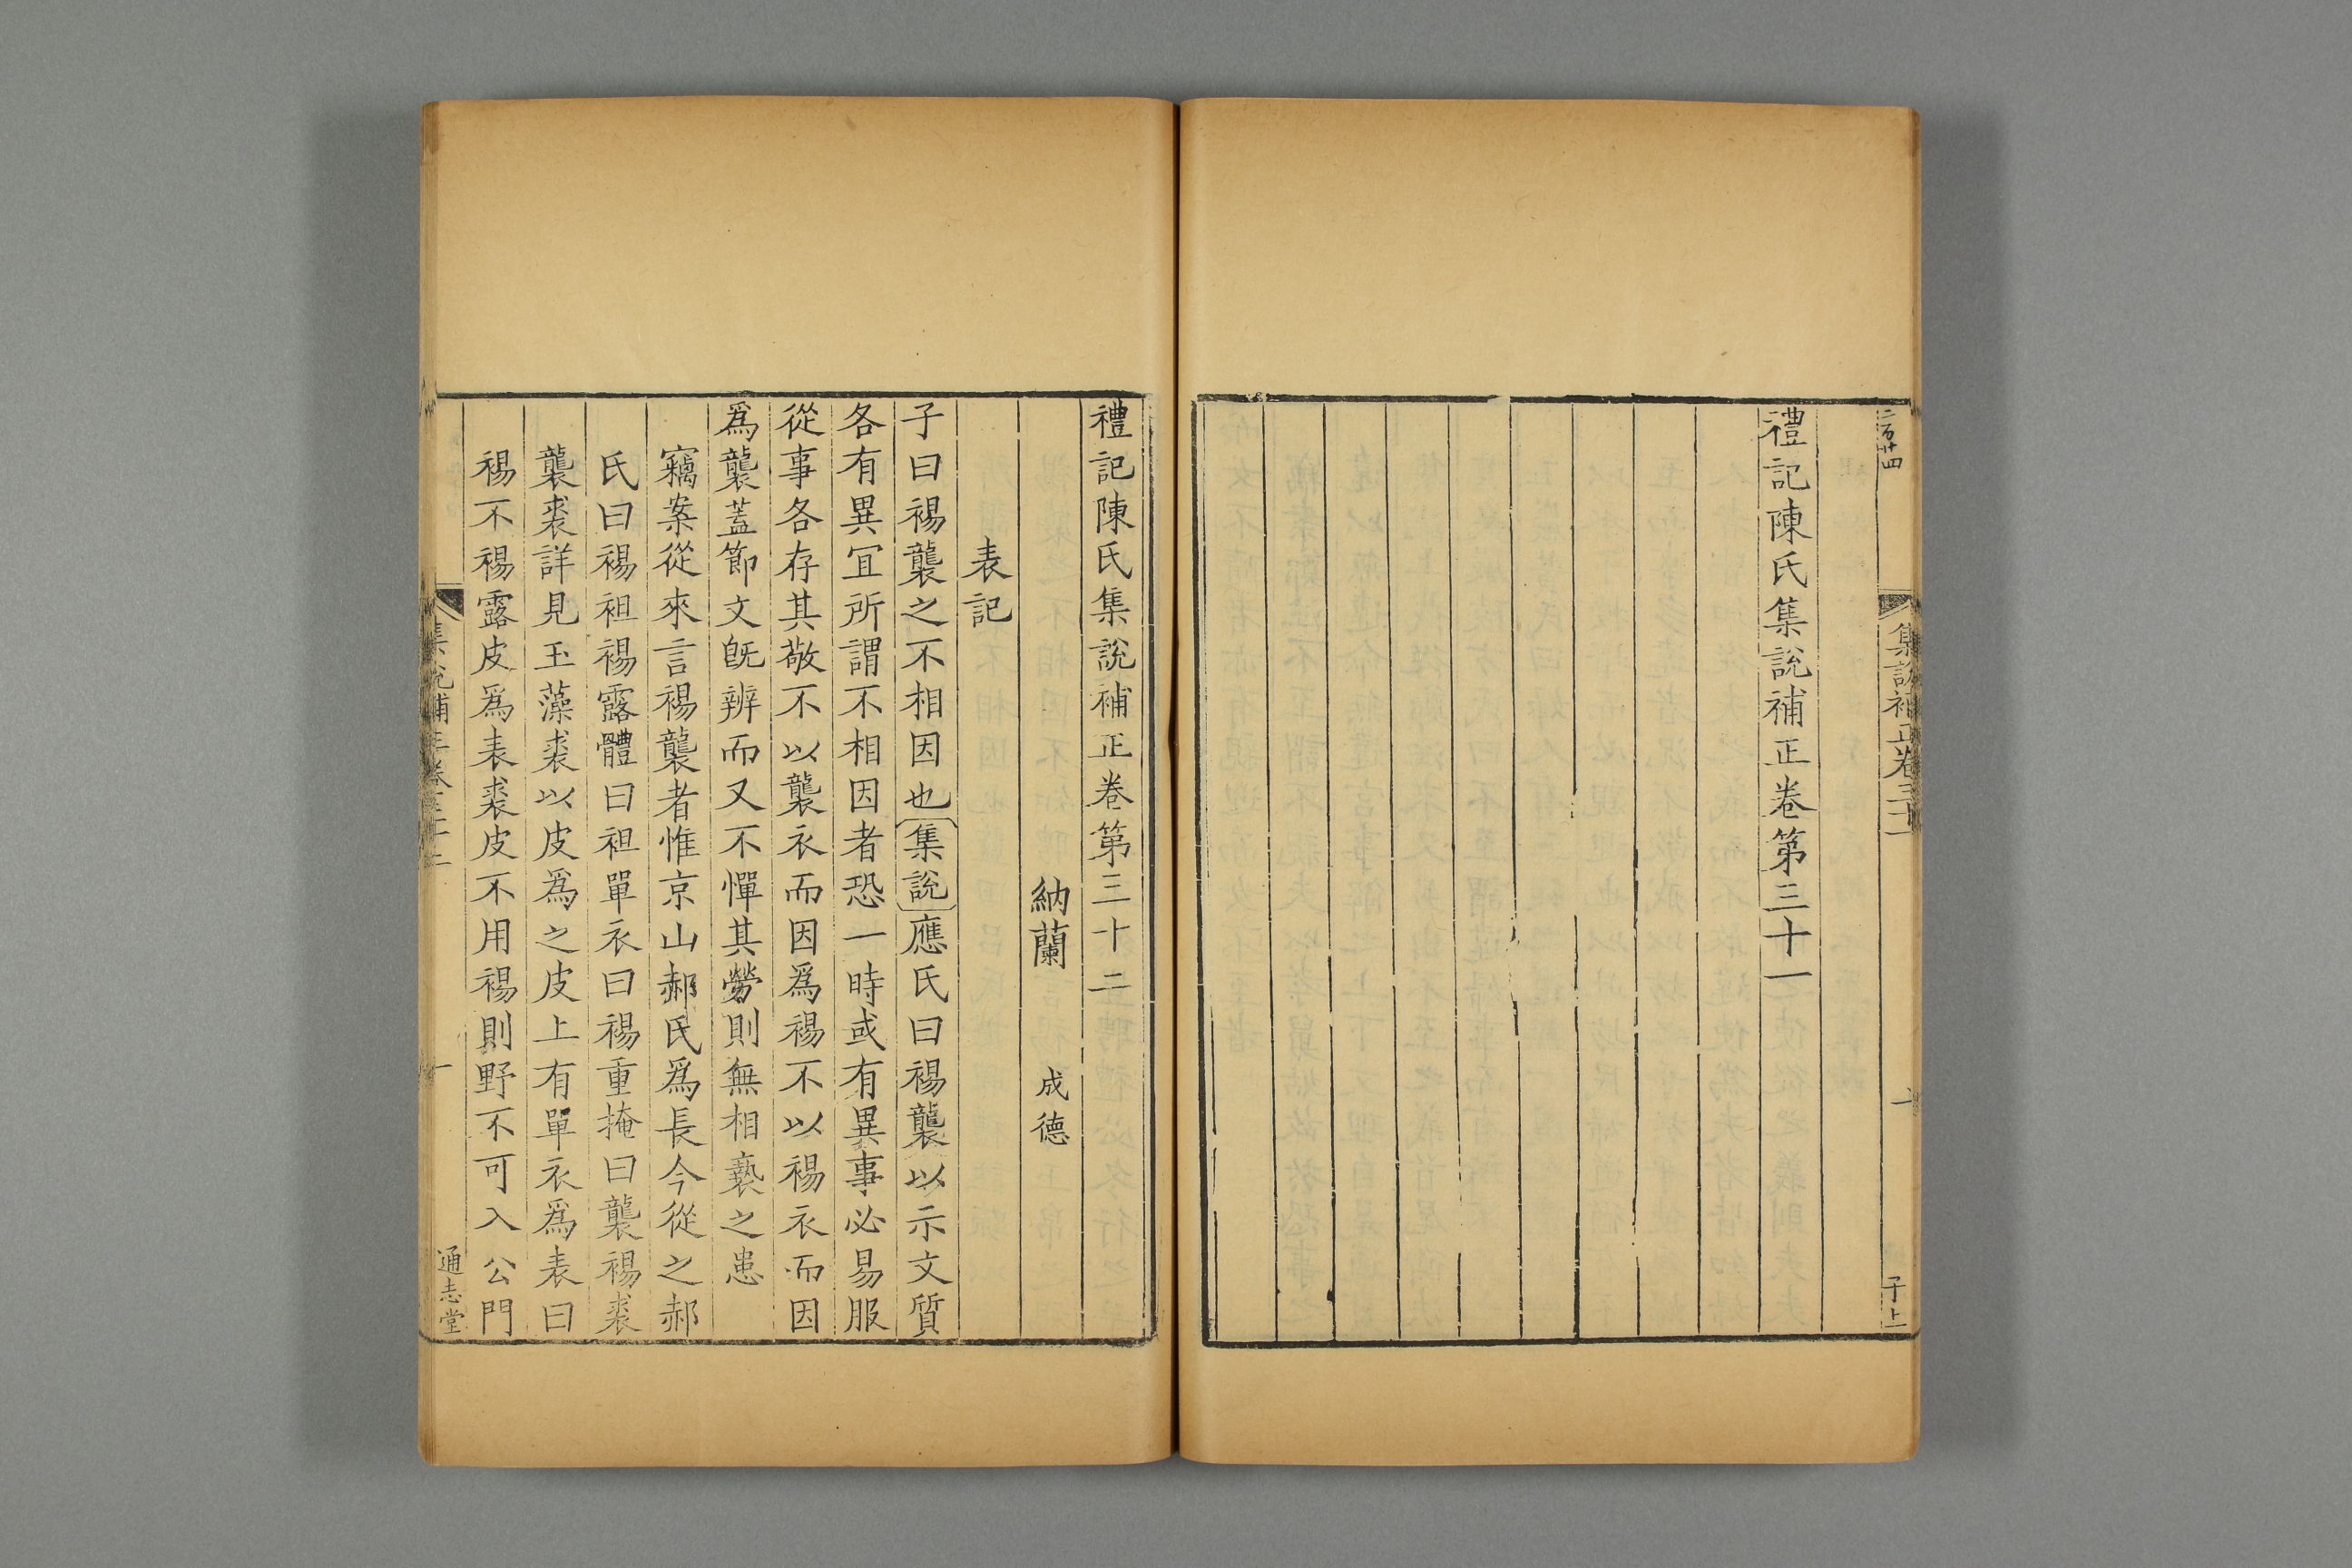 二百十四
集說補正卷三十一
十
于上
禮記陳氏集說補正卷第三十一
禮記陳氏集說補正卷第三十二
納蘭 成德
表記
子曰裼襲之不相因也集說應氏曰裼襲以示文質
各有異宜所謂不相因者恐一時或有異事必易服
從事各存其敬不以襲衣而因爲裼不以裼衣而因
爲襲蓋節文旣辨而又不憚其勞則無相褻之患
竊案從來言裼襲者惟京山郝氏爲長今從之郝
氏曰裼袒裼露體曰袒單衣曰裼重掩曰襲裼裘
襲裘詳見玉藻裘以皮爲之皮上有單衣爲表曰
裼不裼露皮爲表裘皮不用裼則野不可入公門
集說補正卷三十二
一
通志堂